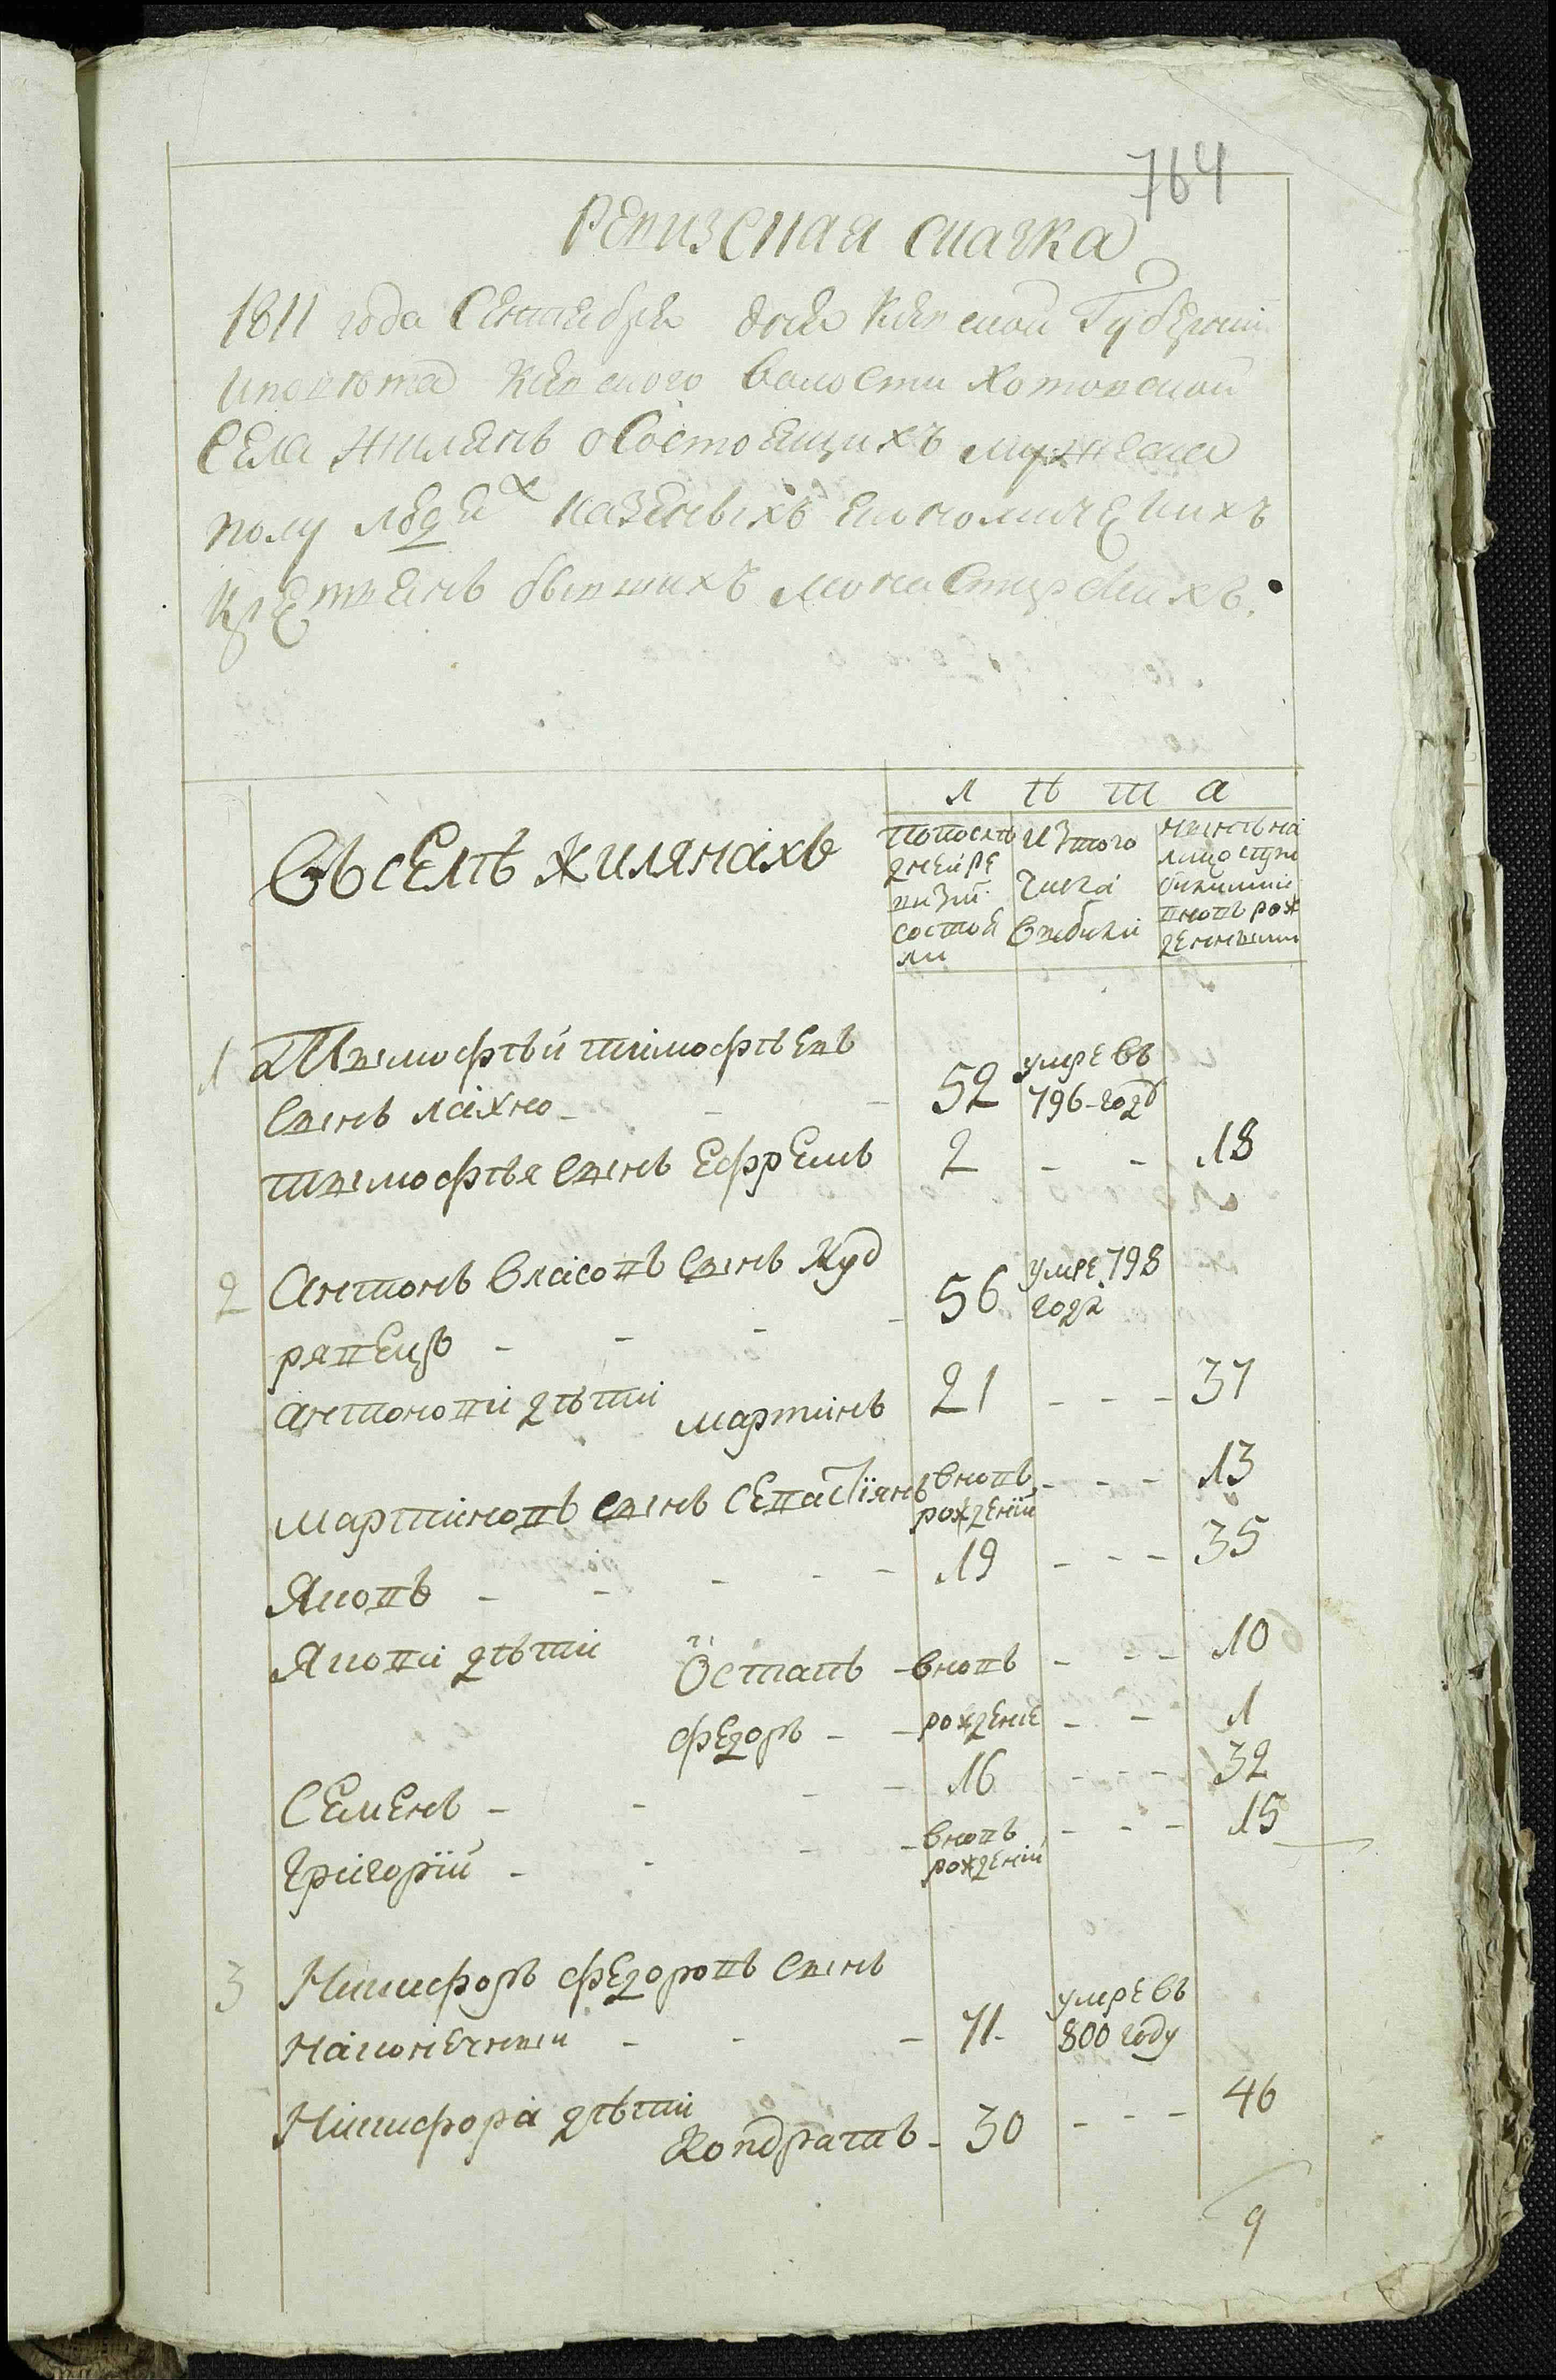 764
Ревизская сказка
1811 года Сентября дня Киевской Губерніи
и повѣта Киевского волости Хотовской
Села Жилянъ о Состоящихъ мужеска
полу людех казенныхъ економическихъ
крестьянъ бывшихъ монастирскихъ.
лѣта
Въ селѣ Жилянахъ
по послѣ
дней ре
визіи
состоя
ли
изъ того
числа
выбили
нынѣ на
лицо
вновь рож
денными
1 Тымофѣй тимофѣевъ
сынъ лахно - - - 52 умре въ 796-году
тымофѣя сынъ Ефремъ 2 - - 18
2 Антонъ власовъ сынъ Куд
рявецъ - - - - 56 умре 798 года
антонови дѣти мартинъ 21 - - - 37
мартиновъ сынъ Севастіянъ вновь рожденій - - - 13
Яковъ - - - - - 19 - - - 35
Якови дѣти Остапъ - вновь - - - 10
федоръ - - рожденіе - - 1
Семенъ - - - - 16 - - - 32
Григорій - - - - вновь рожденій - - - 15
3 Никифоръ федоровъ сынъ
Наконечный - - - 71 - умре въ 800 году
Никифора дѣти Кондратъ - 30 - - - 46
9